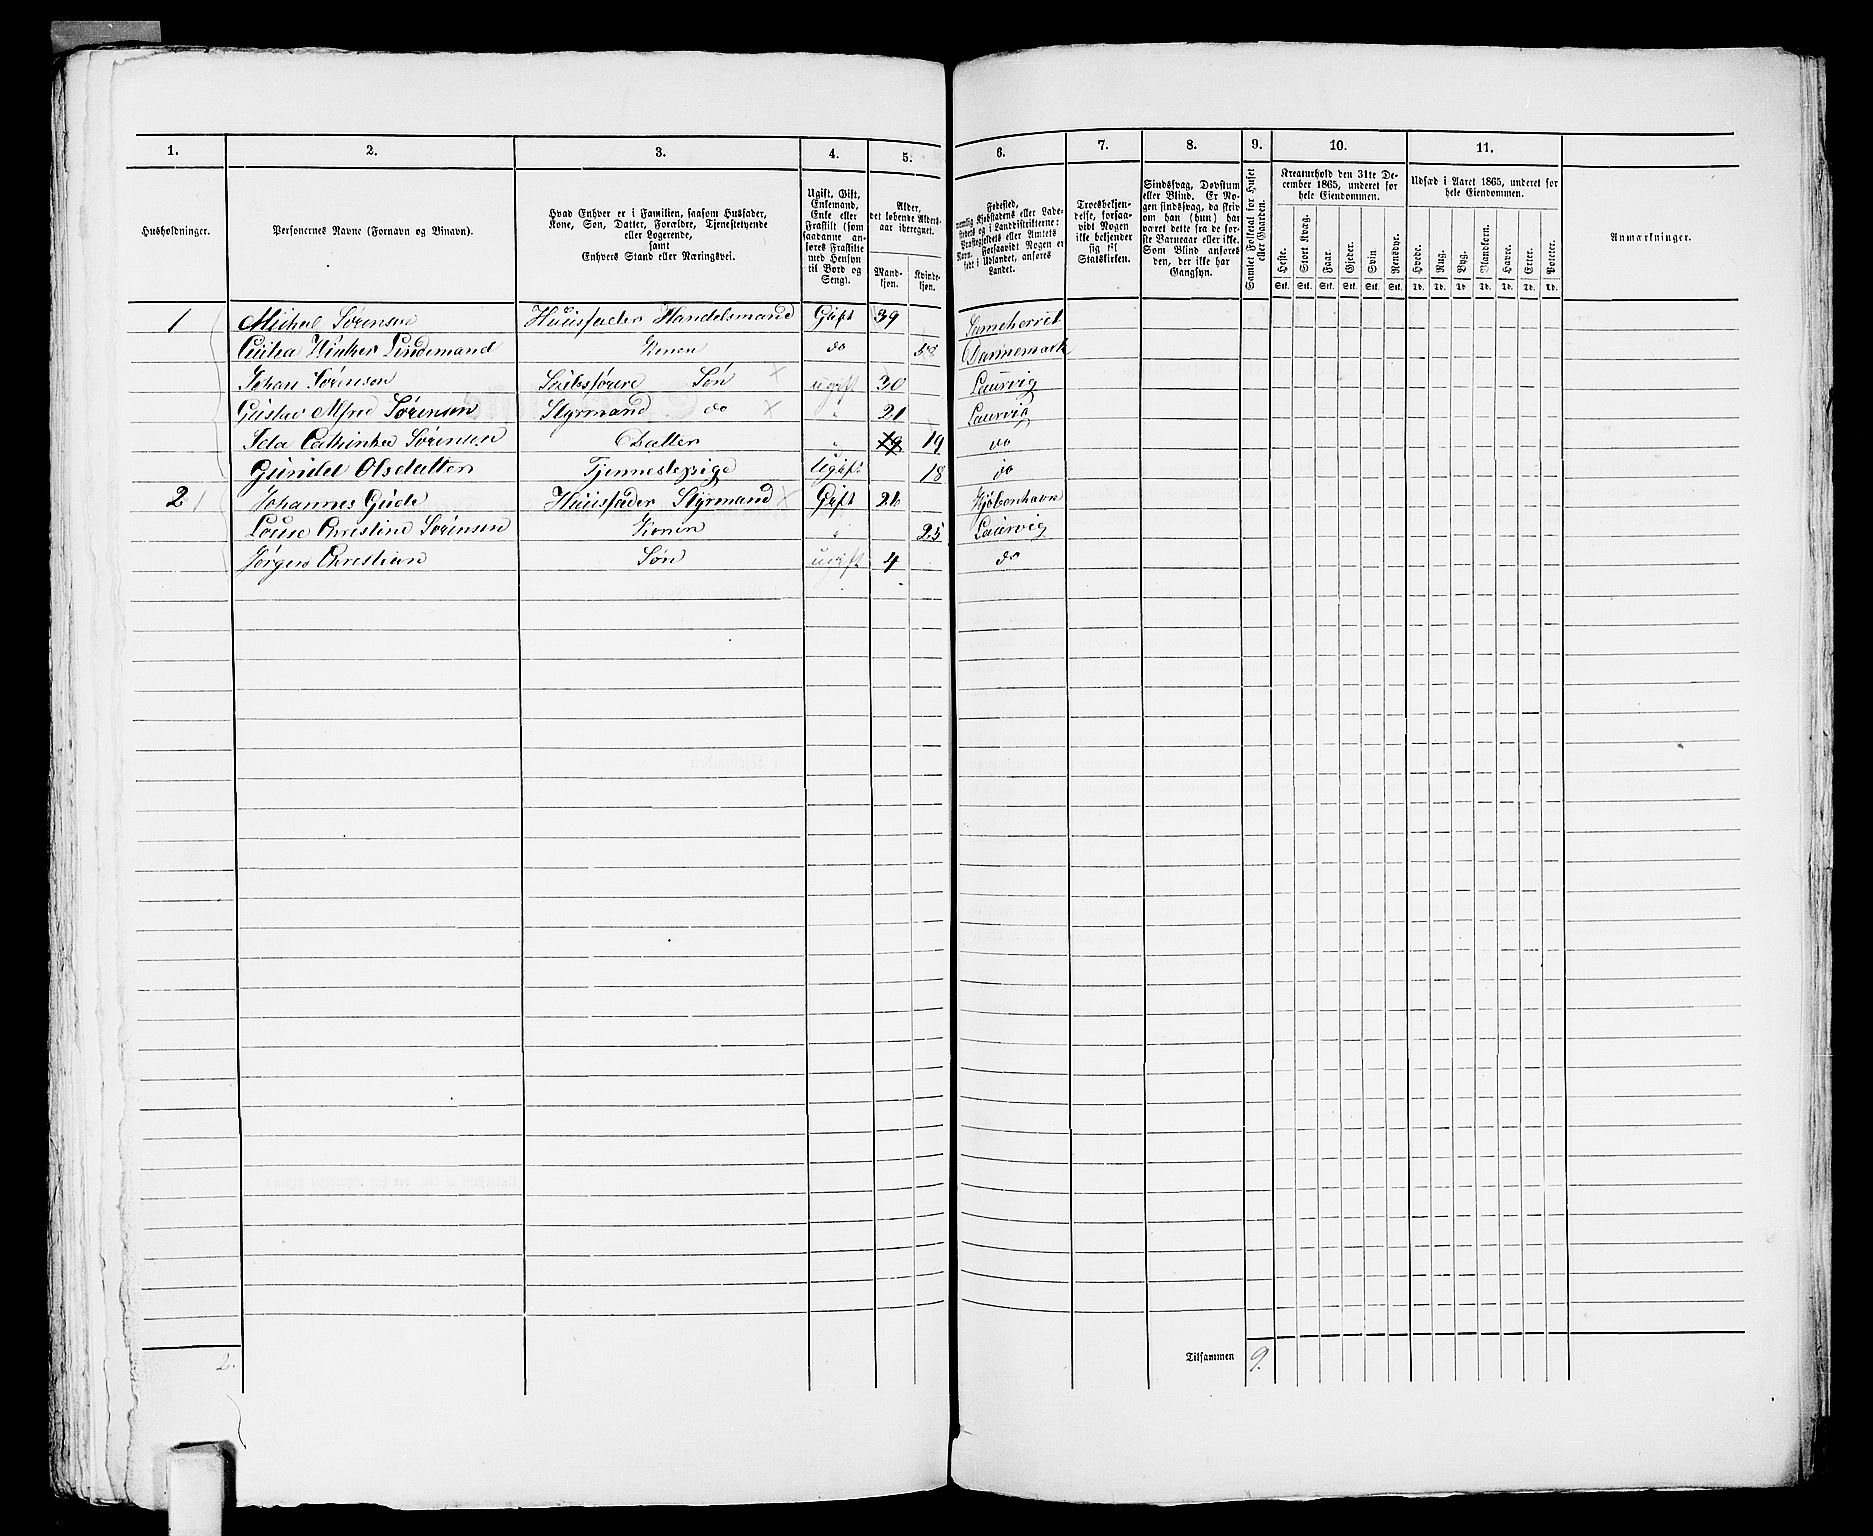 1. 2. 3. 4. 5. 6. 7. 8. 9. 10. 11.
Husholdninger.
Personernes Navne (Fornavn og Binavn).
Hvad Enhver er i Familien, saasom Husfader,
Kone, Søn, Datter, Forældre, Tjenestetyende
eller Logerende,
samt
Enhvers Stand eller Næringsvei.
Ugift, Gift,
Enkemand,
Enke eller
Fraskilt (som
saadanne an-
føres Fraskilte
med Hensyn
til Bord og
Seng).
Alder,
det løbende Alders-
aar iberegnet.
Mand-
kjøn.
Kvinde-
kjøn.
Fødested,
nemlig Kjøbstadens eller Lade-
stedets og i Landdistrikterne:
Præstegjeldets eller Amtets
Navn. Forsaavidt Nogen er
født i Udlandet, anføres
Landet.
Troesbekjen-
delse, forsaa-
vidt Nogen
ikke bekjender
sig til
Statskirken.
Sindssvag, Døvstum
eller Blind. Er No-
gen sindssvag, da skriv
om han (hun) har
været dette fra de før-
ste Barneaar eller ikke.
Som Blind anføres
den, der ikke har
Gangsyn.
Samlet Folketal for Huset
eller Gaarden.
Kreaturhold den 31te De-
cember 1865, underet for
hele Eiendommen.
Heste. Stort Kvæg. Faar. Gjeder. Svin Rensdyr.
Stk. Stk. Stk. Stk. Stk. Stk.
Udsæd i Aaret 1865, underet for
hele Eiendommen.
Hvede. Rug. Byg. Blandkorn. Havre. Erter. Poteter.
Td. Td. Td. Td. Td. Td. Td.
Anmærkninger.
1 Michael Sørensen Huusfader Handelsmand Gift 39
Lindemand Konen do 58 Dannemark
Johan Sørensen Søn ugift 30 Laurvig
Gustav Alfred Sørensen Styrmand do 21 Laurvig
Ida Cathinka Sørensen Datter " 19 19 do
Gunild Olsdatter Tjennestepige Ugift 18 do
2 Johannes Gude Huusfader Styrmand Gift 26 Kjøbenhavn
Louise Christine Sørensen Konen " 25 Laurvig
Jørgen Christian Søn ugift 4 do
2.
Tilsammen 9.